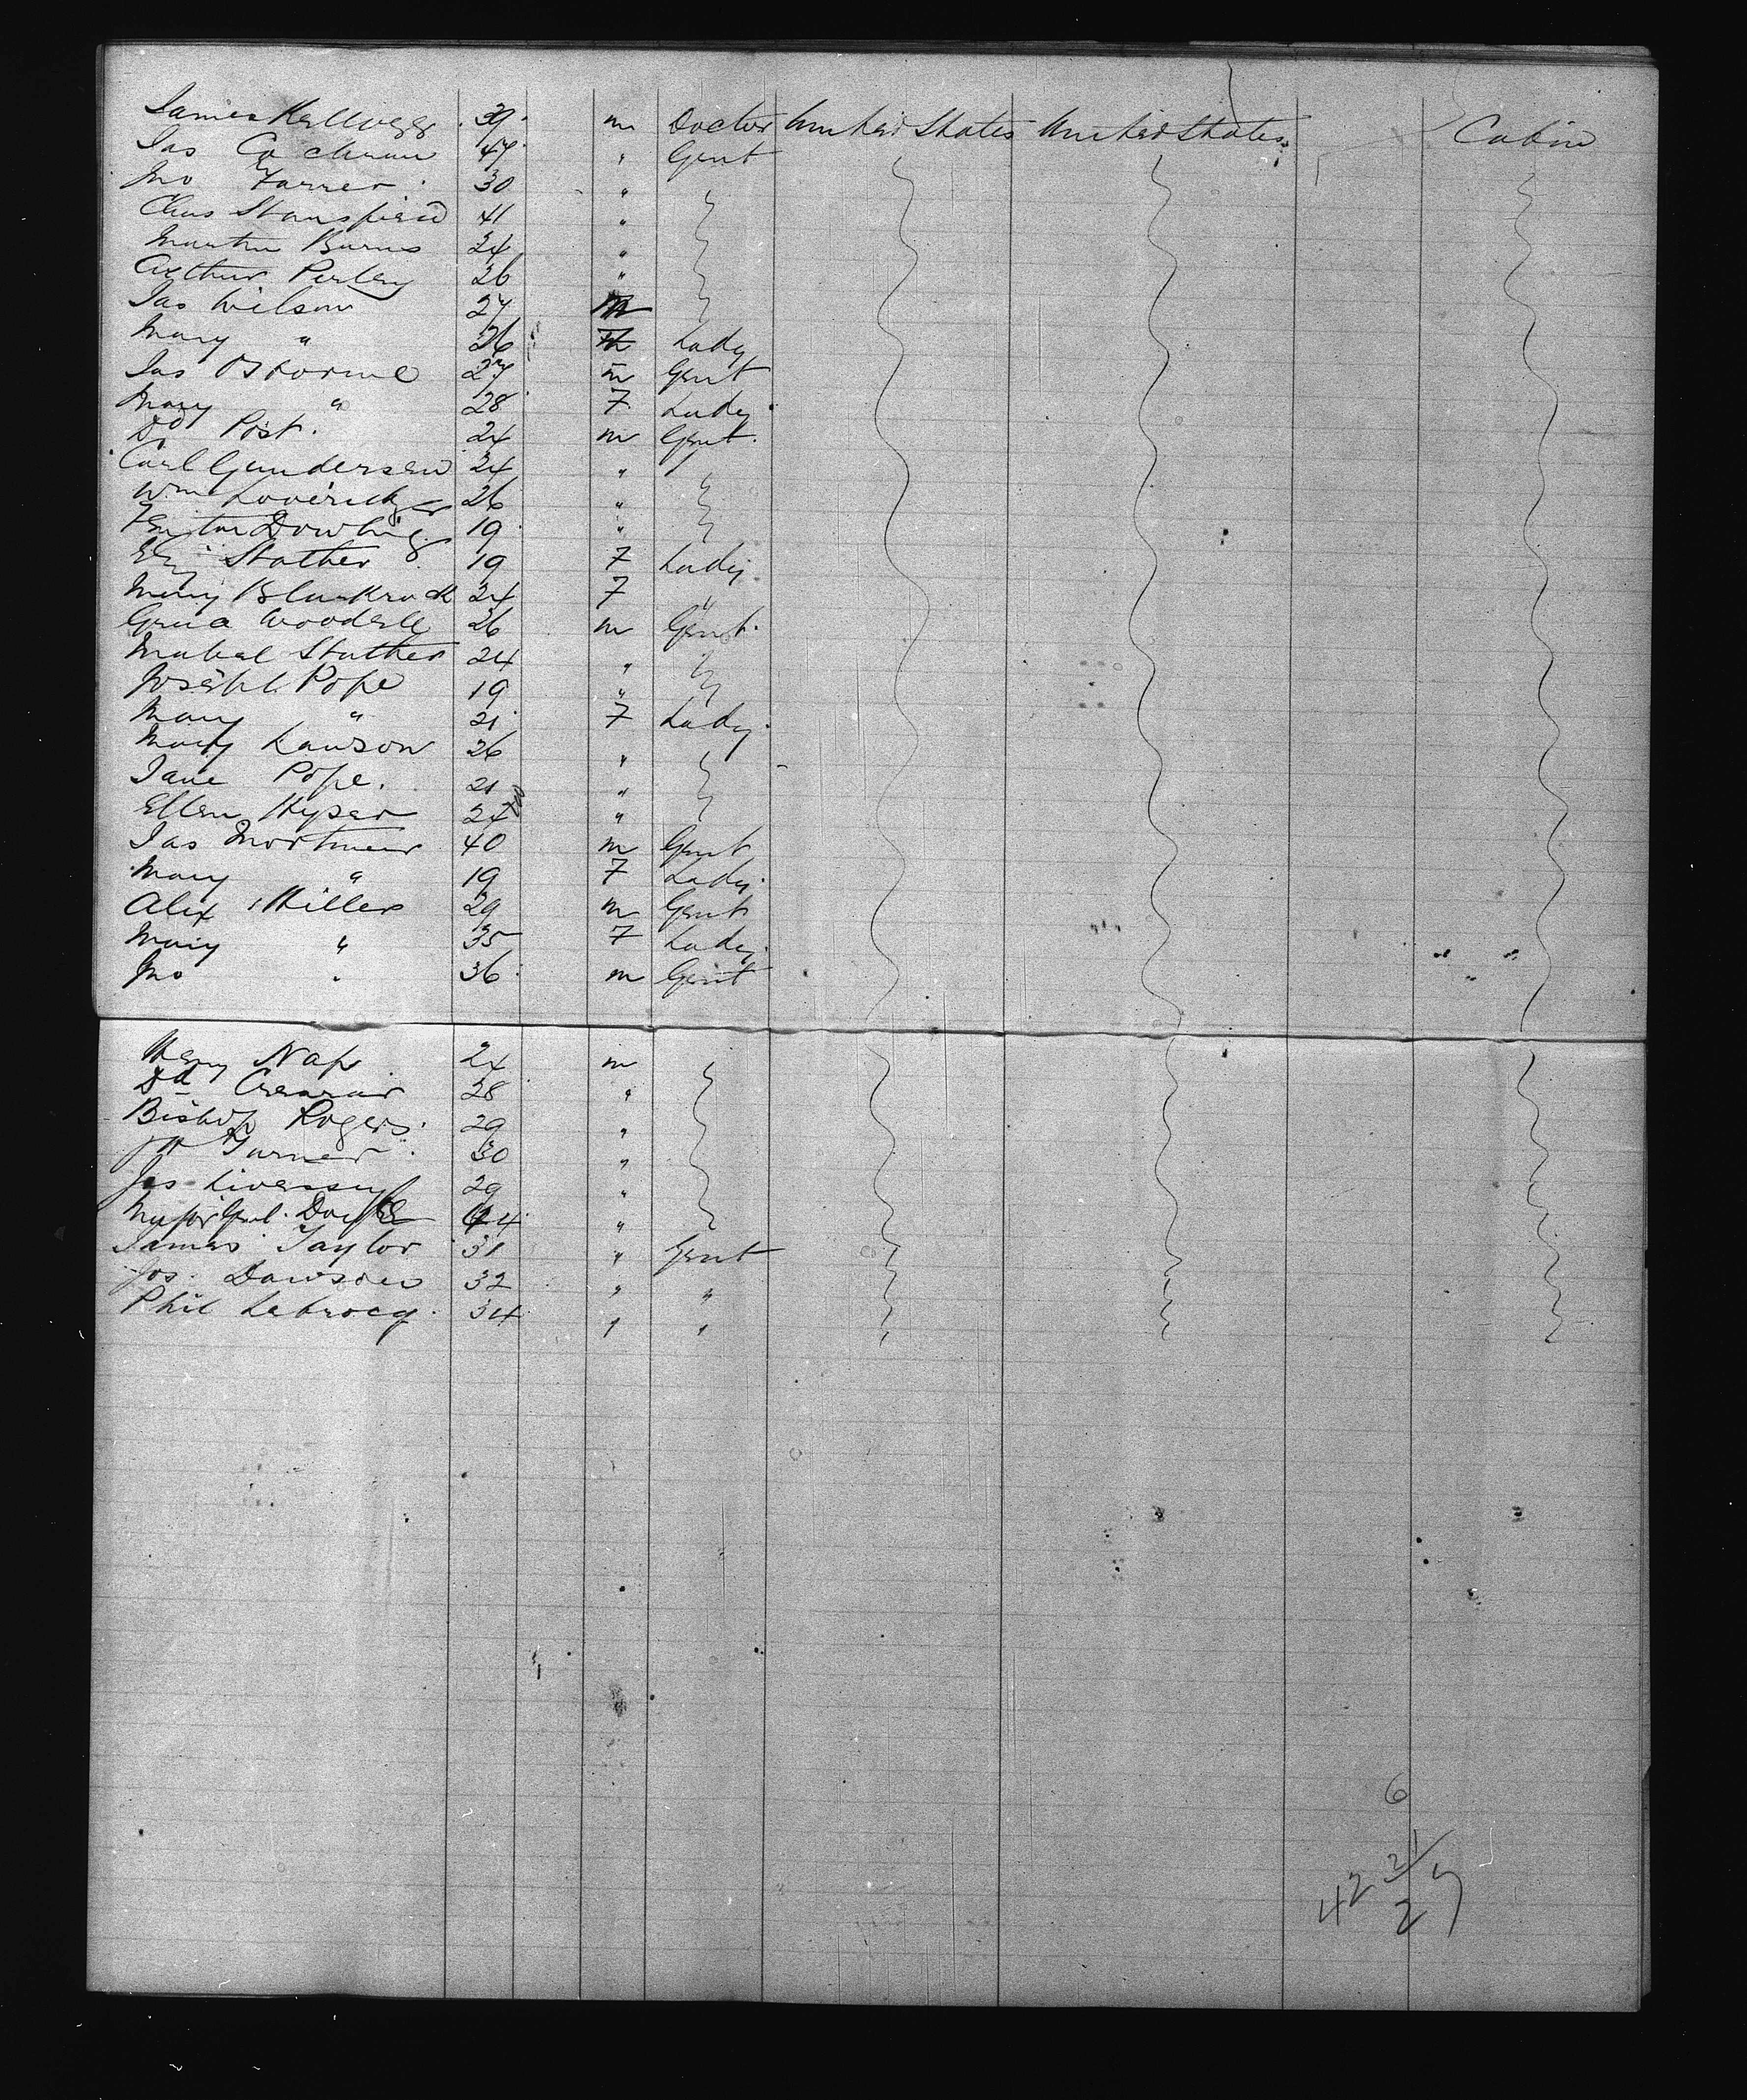 James Kellogg 39 m Doctor United States United States Cabin
Jas Cochrane 47 " Gent
Jno Farrer 30 "
Chas Stansfield 41 "
Martin Burns 24 "
Arthur Perley 26 "
Jas Wilson 27 m
Mary " 26 Lady
Jas Osborne 27 m Gent
Mary " 28 F Lady
Dd Post. 24 m Gent.
Carl Gundersen 24 "
Wm Loveridge 26 "
Dowling 19 "
Stather 19 F Lady
Mary 24 F "
26 m Gent.
Mabel Stather 24 "
Joseph Pope 19 "
Mary " 21 F Lady.
Mary Lawson 26 "
Jane Pope. 21 "
Ellen Kyser 24 "
Jas Mortimer 40 m Gent
Mary " 19 F Lady.
Alex Miller 29 m Gent
Mary " 35 F Lady
Jno " 36 m Gent
Henry 24 m
Dd 28 "
Bishop Rogers. 29 "
Turner 30 "
Jos Livessey 29 "
Major Genl. Doyle 64 "
James Taylor 31 " Gent
Jos. Dawson 32 " "
Phil Lebrocq. 34 " "
6
42 21/27